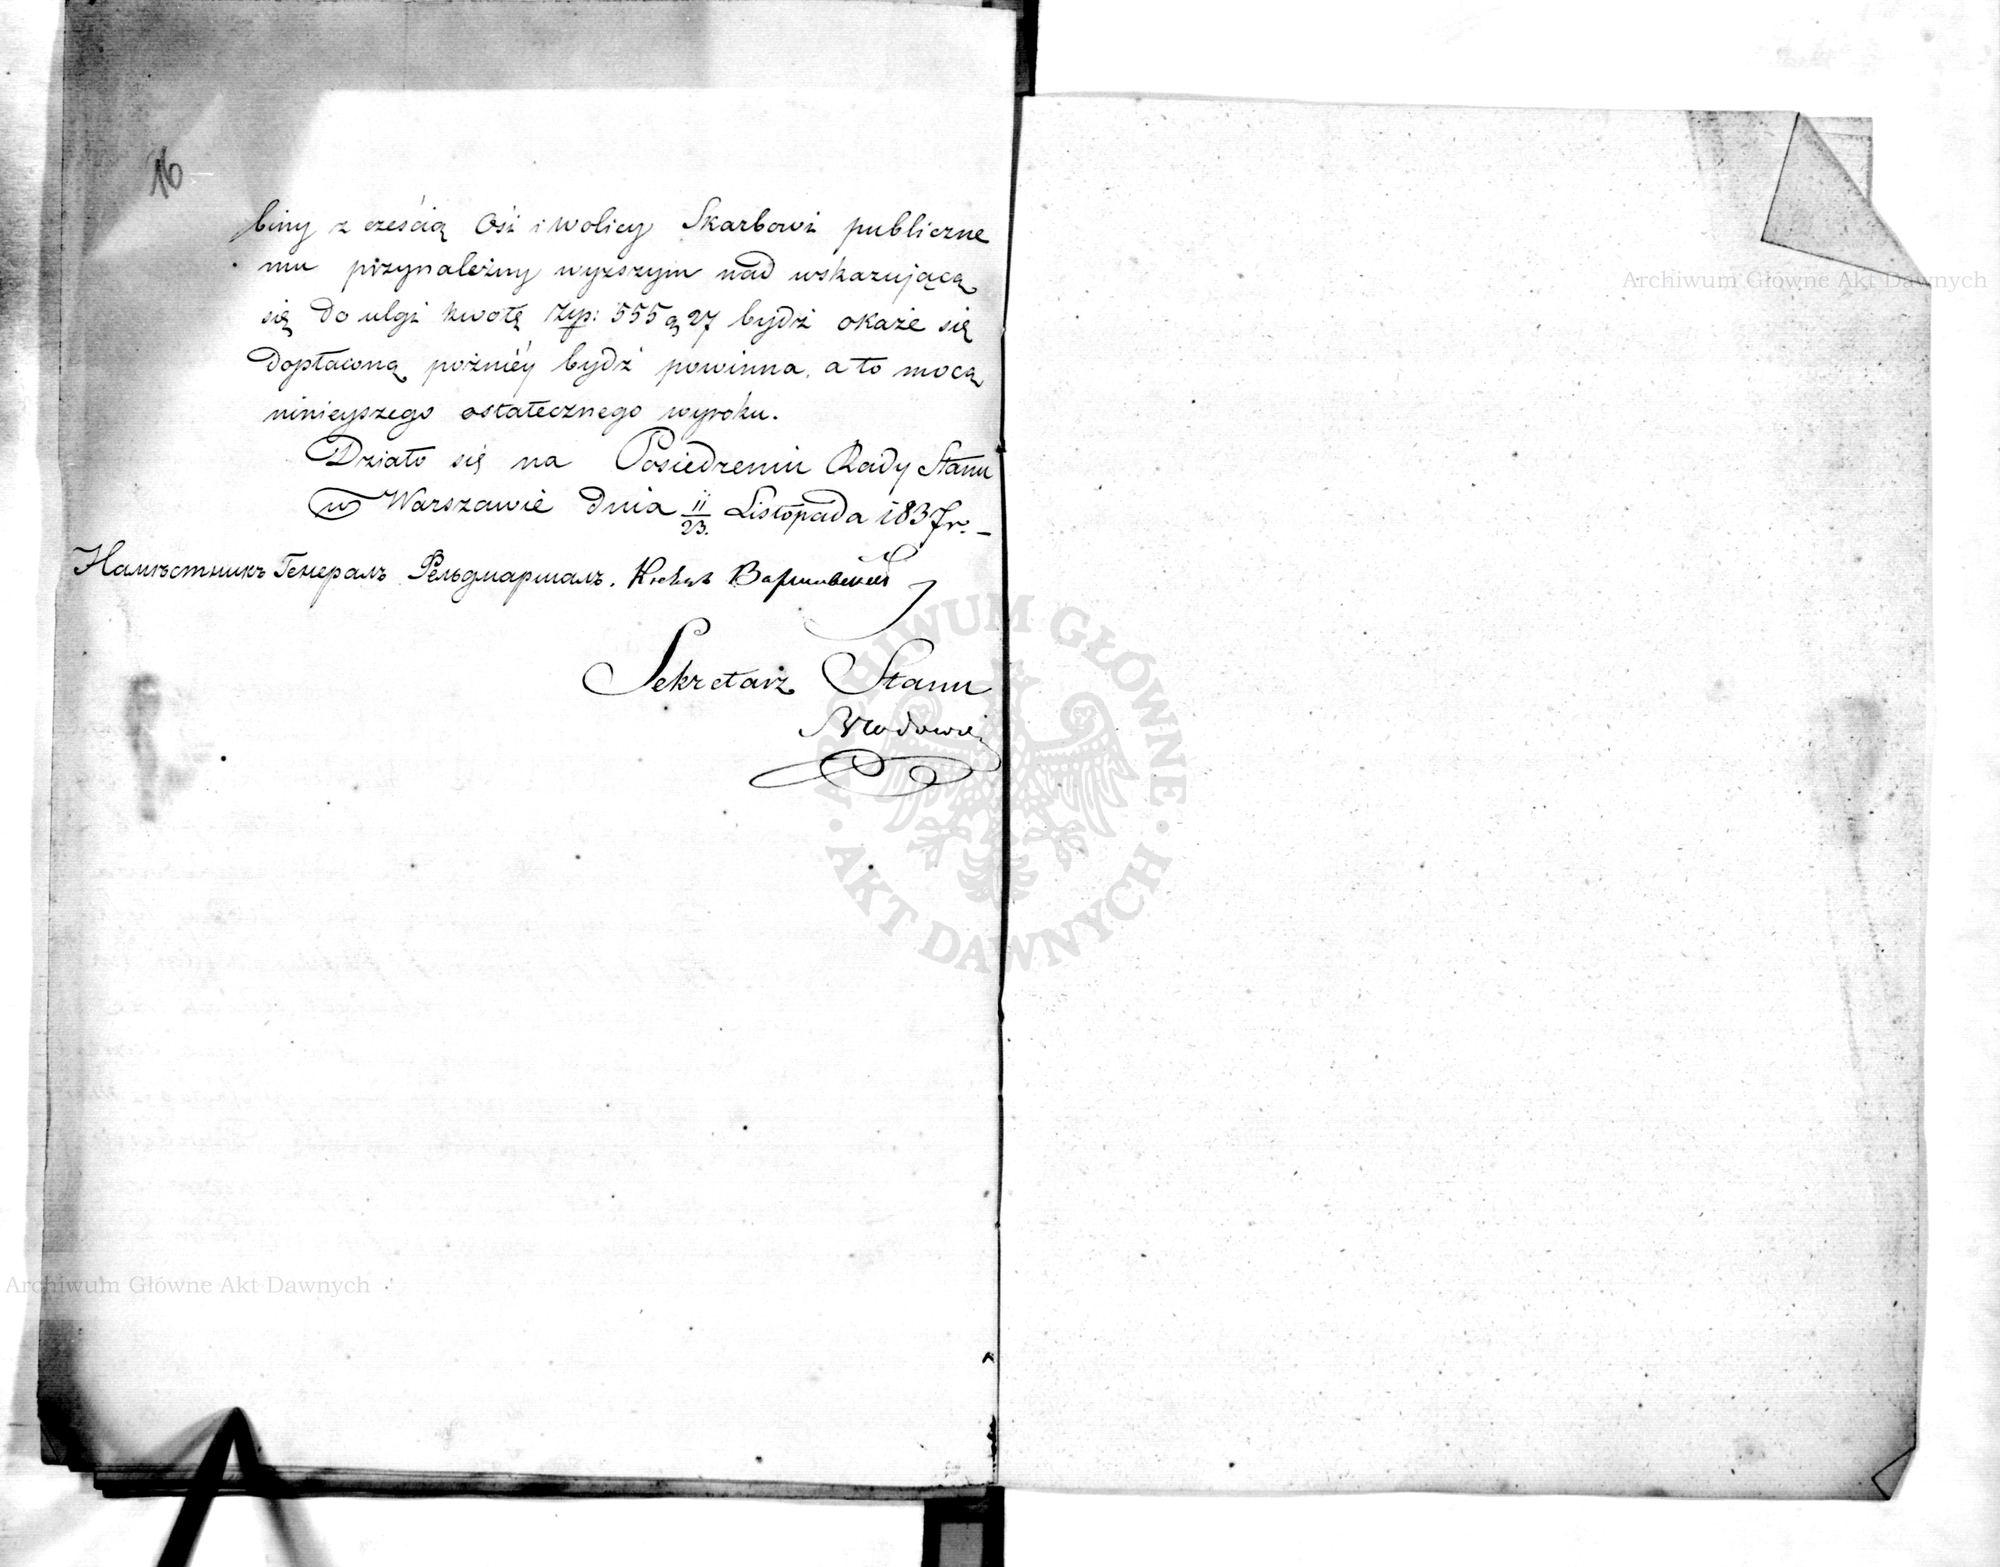 16
biny z cześcią Osi i Wolicy Skarbowi publiczne
mu przynależny wyższym nad wskazującą
się do ulgi kwotę Złp: 555 g 27 bydź okaże się
dopłaconą poźniéy bydź powinna, a to mocą
ninieyszego ostatecznego wyroku.
Działo się na Posiedzeniu Rady Stanu
w Warszawie dnia 11/23. Listopada 1837 r. –
Намѣстникъ Генералъ Фельдмаршалъ. Князь Варшавскій
Sekretarz Stanu
Archiwum Główne Akt Dawnych
ARCHIWUM GŁÓWNE · AKT DAWNYCH ·
Archiwum Główne Akt Dawnych